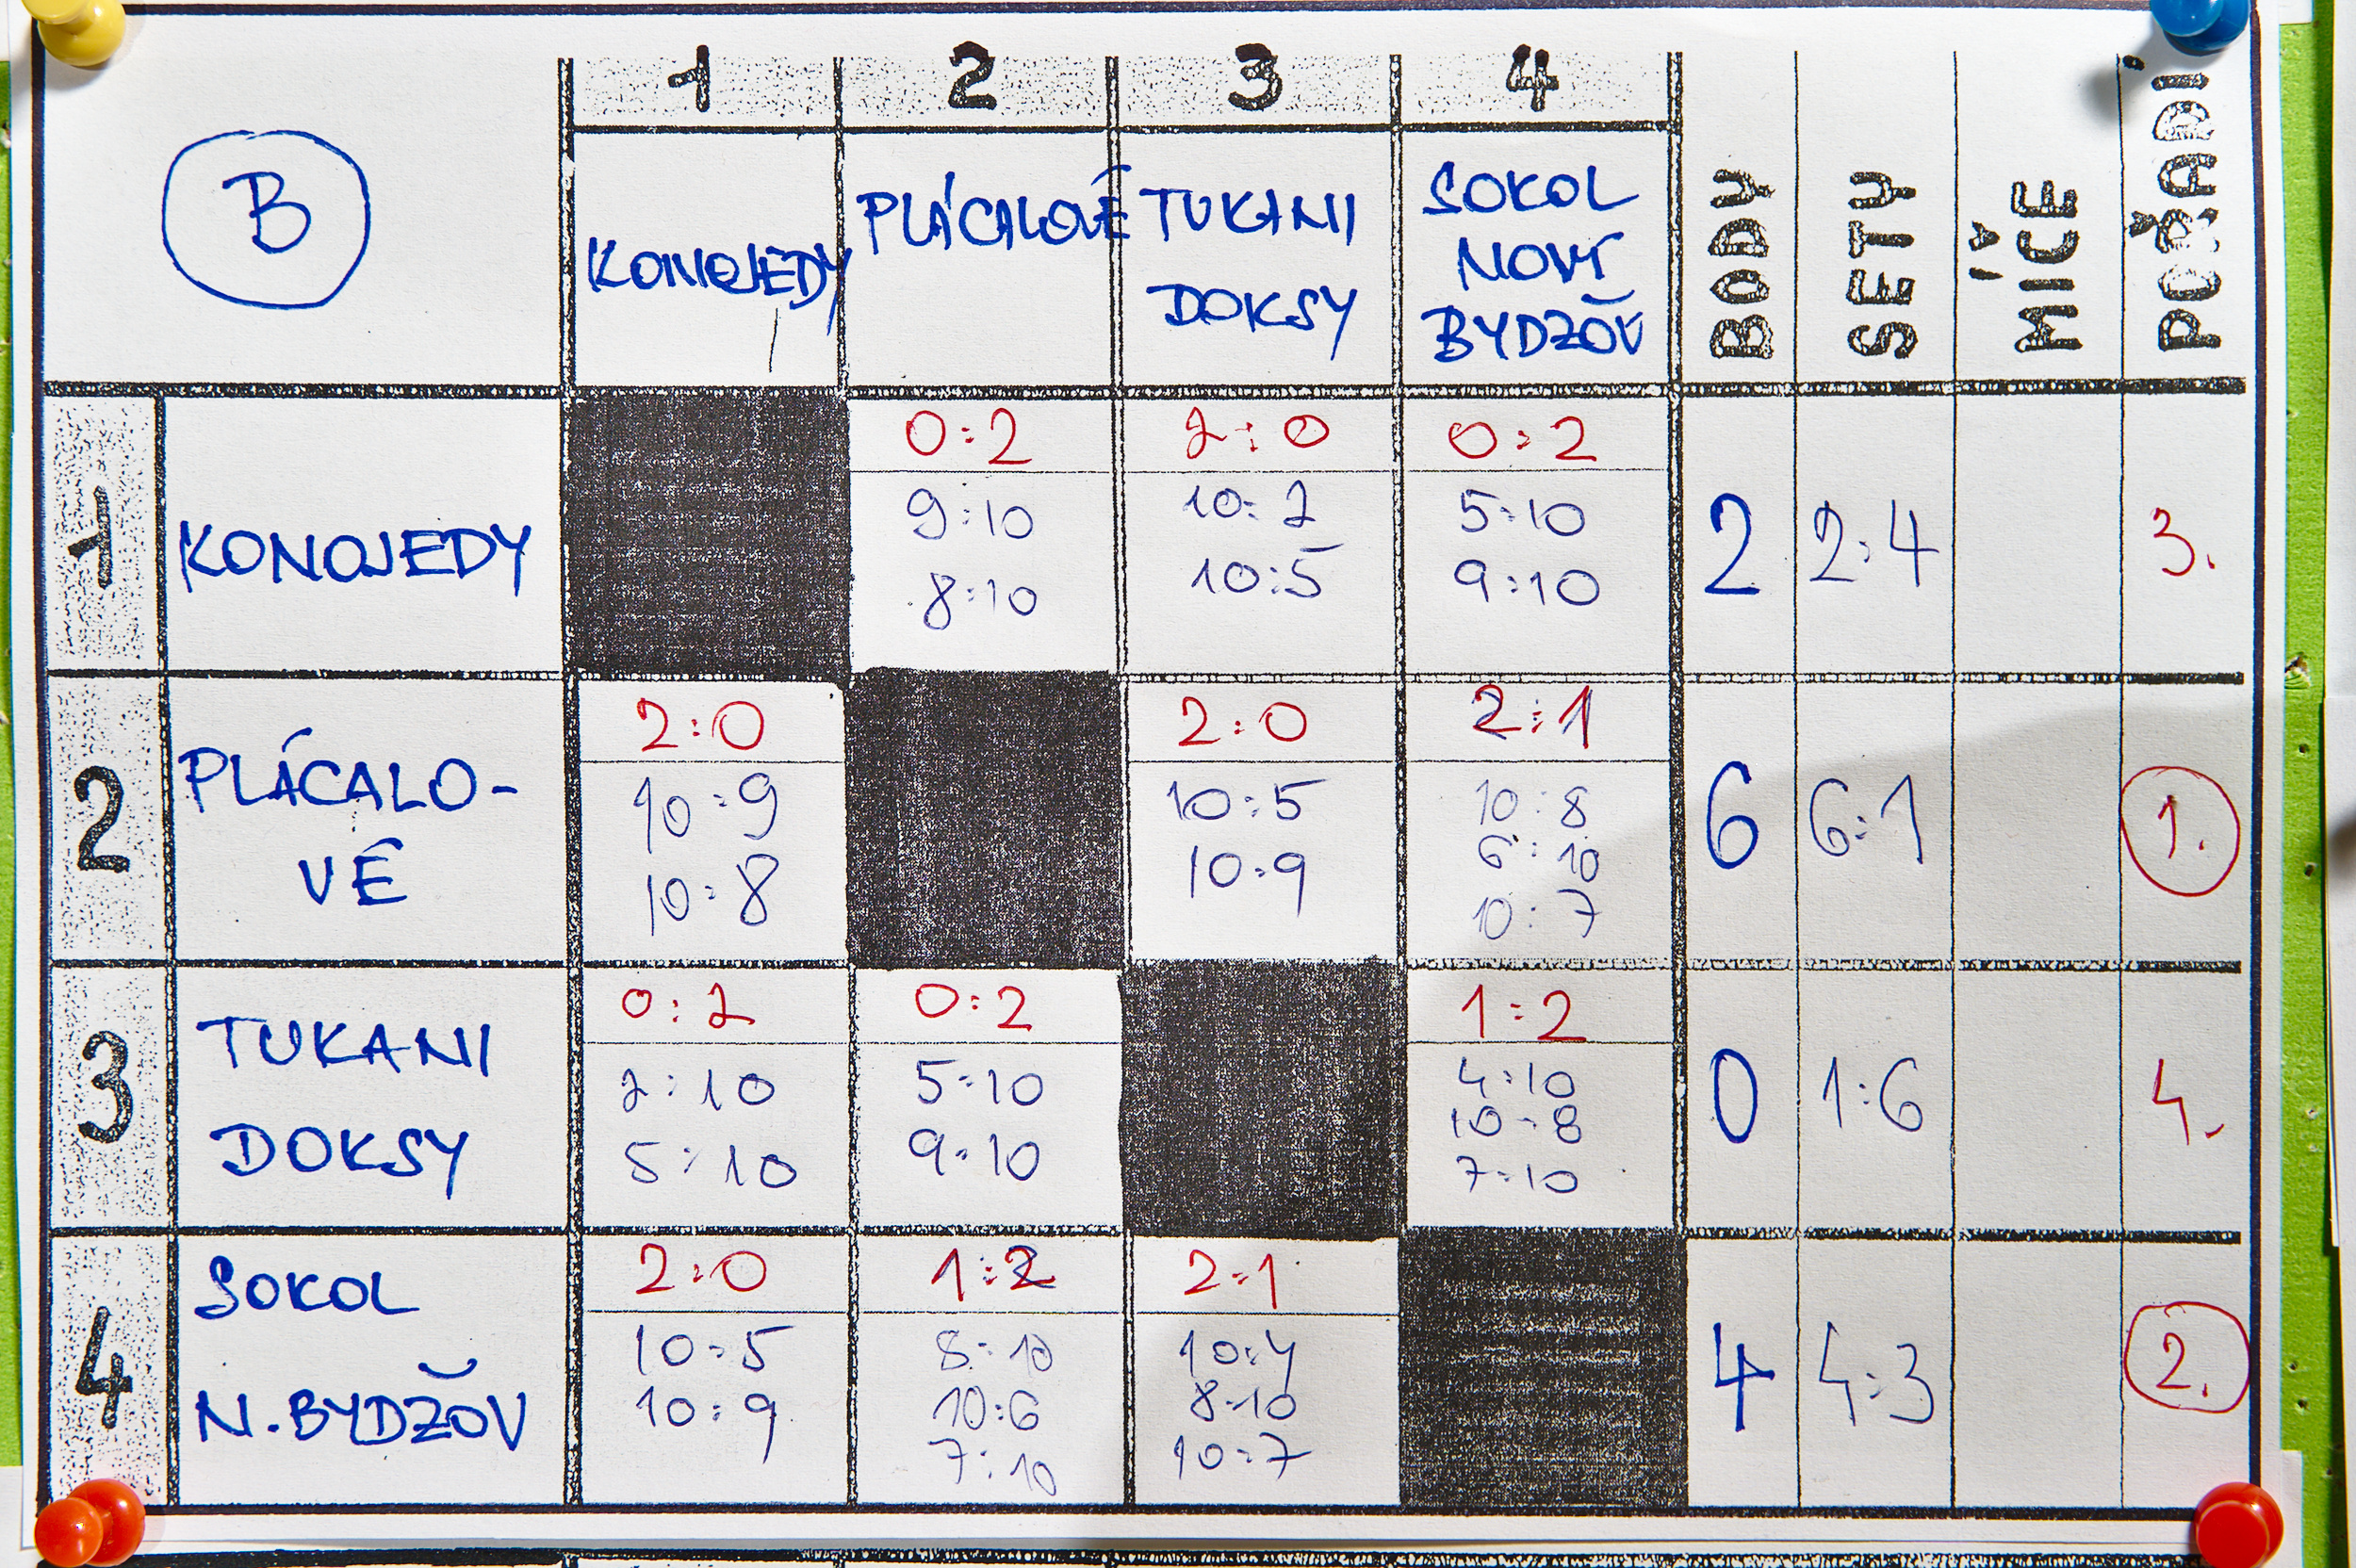 1 2 3 4
B
KONOJEDY
PLÁCALOVÉ
TUKANI
DOKSY
SOKOL
NOVÝ
BYDŽOV
BODY
SETY
MÍČE
POŘADÍ
1
KONOJEDY
0:2
9:10
8:10
2:0
10:2
10:5
0:2
5:10
9:10
2
2:4
3.
2
PLÁCALO-
VÉ
2:0
10:9
10:8
2:0
10:5
10:9
2:1
10:8
6:10
10:7
6
6:1
1.
3
TUKANI
DOKSY
0:2
2:10
5:10
0:2
5:10
9:10
1:2
4:10
10:8
7:10
0
1:6
4.
4
SOKOL
N.BYDŽOV
2:0
10:5
10:9
1:2
8:10
10:6
7:10
2:1
10:4
8:10
10:7
4
4:3
2.